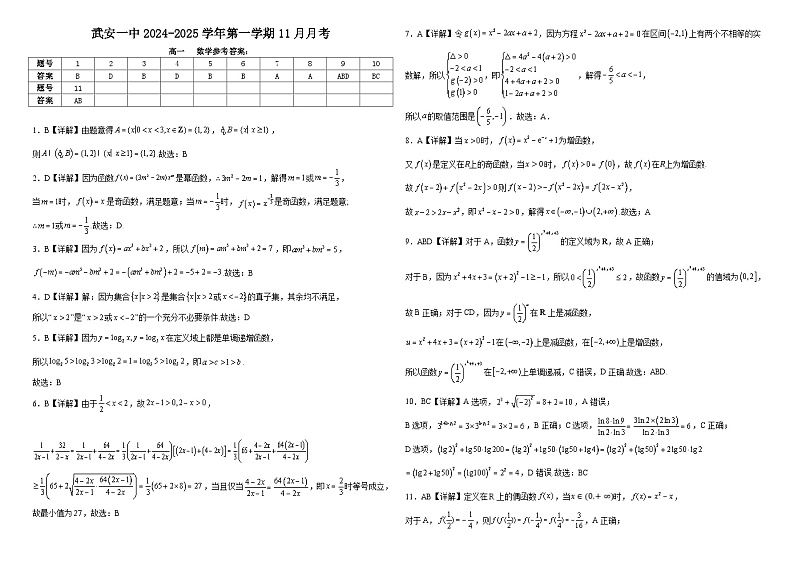 武安一中 2024-2025 学年第一学期 11 月月考
高一 数学参考答案:
题号 1 2 3 4 5 6 7 8 9 10
答案 B D B D B B A A ABD BC
题号 11
答案 AB
1．B【详解】由题意得 A={x|0<x<3,x∈Z}={1,2}，∁ᵣB={x| x≥1}，
则 A∩(∁ᵣB)={1,2}∩{x| x≥1}={1,2}.故选:B
2．D【详解】因为函数 f(x)=(3m²-2m)xᵐ 是幂函数，∴3m²-2m=1，解得 m=1 或 -1/3，
当 m=1 时， f(x)=x 是奇函数，满足题意；当 m=-1/3 时， f(x)=x^(-1/3) 是奇函数，满足题意;
∴m=1 或 m=-1/3.故选：D
3．B【详解】因为 f(x)=ax⁵+bx³+2，所以 f(m)=am⁵+bm³+2=7，即 am⁵+bm³=5，
f(-m)=-am⁵-bm³+2=-(am⁵+bm³)+2=-5+2=-3.故选：B
4．D【详解】解：因为集合{x|x>2}是集合{x|x>2或x<-2}的真子集，其余均不满足，
所以“x>2”是“x>2或x<-2”的一个充分不必要条件.故选：D
5．B【详解】因为 y=log₂x,y=log₅x 在定义域上都是单调递增函数，
所以 log₂5>log₂3>log₂2=1=log₅5>log₅2，即 a>c>1>b.
故选：B
6．B【详解】由于 1/2<x<2，故 2x-1>0,2-x>0，
1/(2x-1)+32/(2-x)=1/(2x-1)+64/(4-2x)=1/3(1/(2x-1)+64/(4-2x))[(2x-1)+(4-2x)]=1/3(65+(4-2x)/(2x-1)+64(2x-1)/(4-2x))
≥1/3(65+2√((4-2x)/(2x-1)·64(2x-1)/(4-2x)))=1/3(65+2×8)=27，当且仅当 (4-2x)/(2x-1)=64(2x-1)/(4-2x)，即 x=2/3 时等号成立，
故最小值为 27，故选：B
7．A【详解】令 g(x)=x²-2ax+a+2，因为方程 x²-2ax+a+2=0 在区间(-2,1)上有两个不相等的实
数解，所以 {△>0 -2<a<1 g(-2)>0 g(1)>0，即 {△=4a²-4(a+2)>0 -2<a<1 4+4a+a+2>0 1-2a+a+2>0，解得 -6/5<a<-1，
所以 a 的取值范围是(-6/5,-1)．故选：A．
8．A【详解】当 x>0 时， f(x)=x³-e⁻ˣ+1 为增函数，
又 f(x) 是定义在 R 上的奇函数，当 x>0 时， f(x)>0=f(0)，故 f(x) 在 R 上为增函数.
故 f(x-2)+f(x²-2x)>0 则 f(x-2)>-f(x²-2x)=f(2x-x²)，
故 x-2>2x-x²，即 x²-x-2>0，解得 x∈(-∞,-1)∪(2,+∞).故选：A
9．ABD【详解】对于 A，函数 y=(1/2)^(x²+4x+3) 的定义域为 R，故 A 正确；
对于 B，因为 x²+4x+3=(x+2)²-1≥-1，所以 0<(1/2)^(x²+4x+3)≤2，故函数 y=(1/2)^(x²+4x+3) 的值域为(0,2]，
故 B 正确；对于 CD，因为 y=(1/2)ᵘ 在 R 上是减函数，
u=x²+4x+3=(x+2)²-1 在(-∞,-2)上是减函数，在[-2,+∞)上是增函数，
所以函数 y=(1/2)^(x²+4x+3) 在[-2,+∞)上单调递减，C 错误，D 正确.故选：ABD.
10．BC【详解】A 选项，2³+√((-2)²)=8+2=10，A 错误；
B 选项，3^(1+ln2)=3×3^(ln2)=3×2=6，B 正确；C 选项，(ln8·ln9)/(ln2·ln3)=(3ln2×(2ln3))/(ln2·ln3)=6，C 正确；
D 选项，(lg2)²+lg50·lg200=(lg2)²+lg50·(lg50+lg4)=(lg2)²+(lg50)²+2lg50·lg2
=(lg2+lg50)²=(lg100)²=2²=4，D 错误.故选：BC
11．AB【详解】定义在 R 上的偶函数 f(x)，当 x∈(0,+∞)时， f(x)=x²-x，
对于 A，f(1/2)=-1/4，则 f(f(1/2))=f(-1/4)=f(1/4)=-3/16，A 正确；